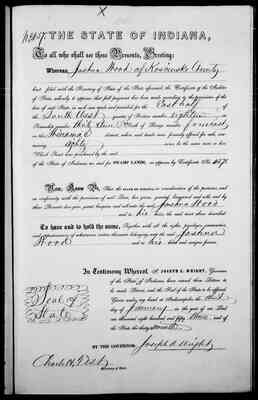 THE STATE OF INDIANA,
To all who shall see these Presents, Greeting:
Whereas, Joshua Wood of Kosciusko County
has filed with the Secretary of State of the State aforesaid, the Certificate of the Auditor
of State, whereby it appears that full payment has been made according to the provisions of the
laws of said State in such case made and provided for the East half of
the South West quarter of Section number eighteen in
Township number Thirty three North of Range number
in the Winamac
eighty acres
Which Tract was purchased by the said
of the State of Indiana as and for SWAMP LANDS, as appears by Certificate No.
Now, Know Ye, That the STATE OF INDIANA, in consideration of the premises, and
in conformity with the provisions of said Laws, has given, granted, bargained and sold and by
these Presents does give, grant, bargain and sell unto the said Joshua Wood
and to his heirs, the said tract above described.
To have and to hold the same, Together with all the rights, privileges, immunities,
and appurtenances of whatsoever nature thereunto belonging, unto the said Joshua
Wood and to his heirs and assigns forever.
In Testimony Whereof, I, JOSEPH A. WRIGHT, Governor
of the State of Indiana, have caused these Letters to
be made Patent, and the Seal of the State to be affixed.
Given under my hand at Indianapolis, the
day of January in the year of our Lord
one thousand eight hundred and fifty and of
the State the
Seal of
State
BY THE GOVERNOR, Joseph A. Wright
Charles H. Test
Secretary of State.